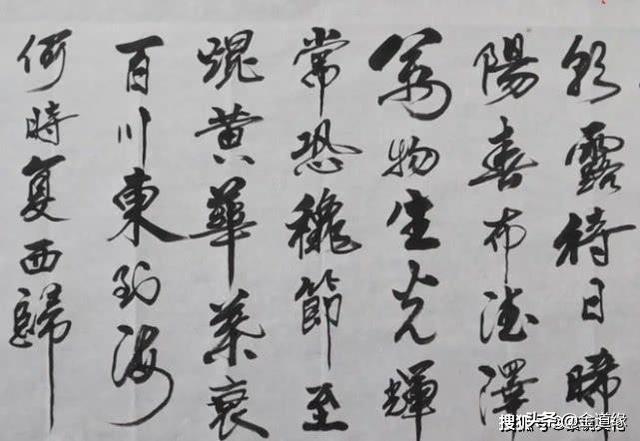 朝露待日晞
陽春布德澤
萬物生光輝
常恐穐節至
焜黄華葉衰
百川東到海
何時复西歸
头条@金道缘